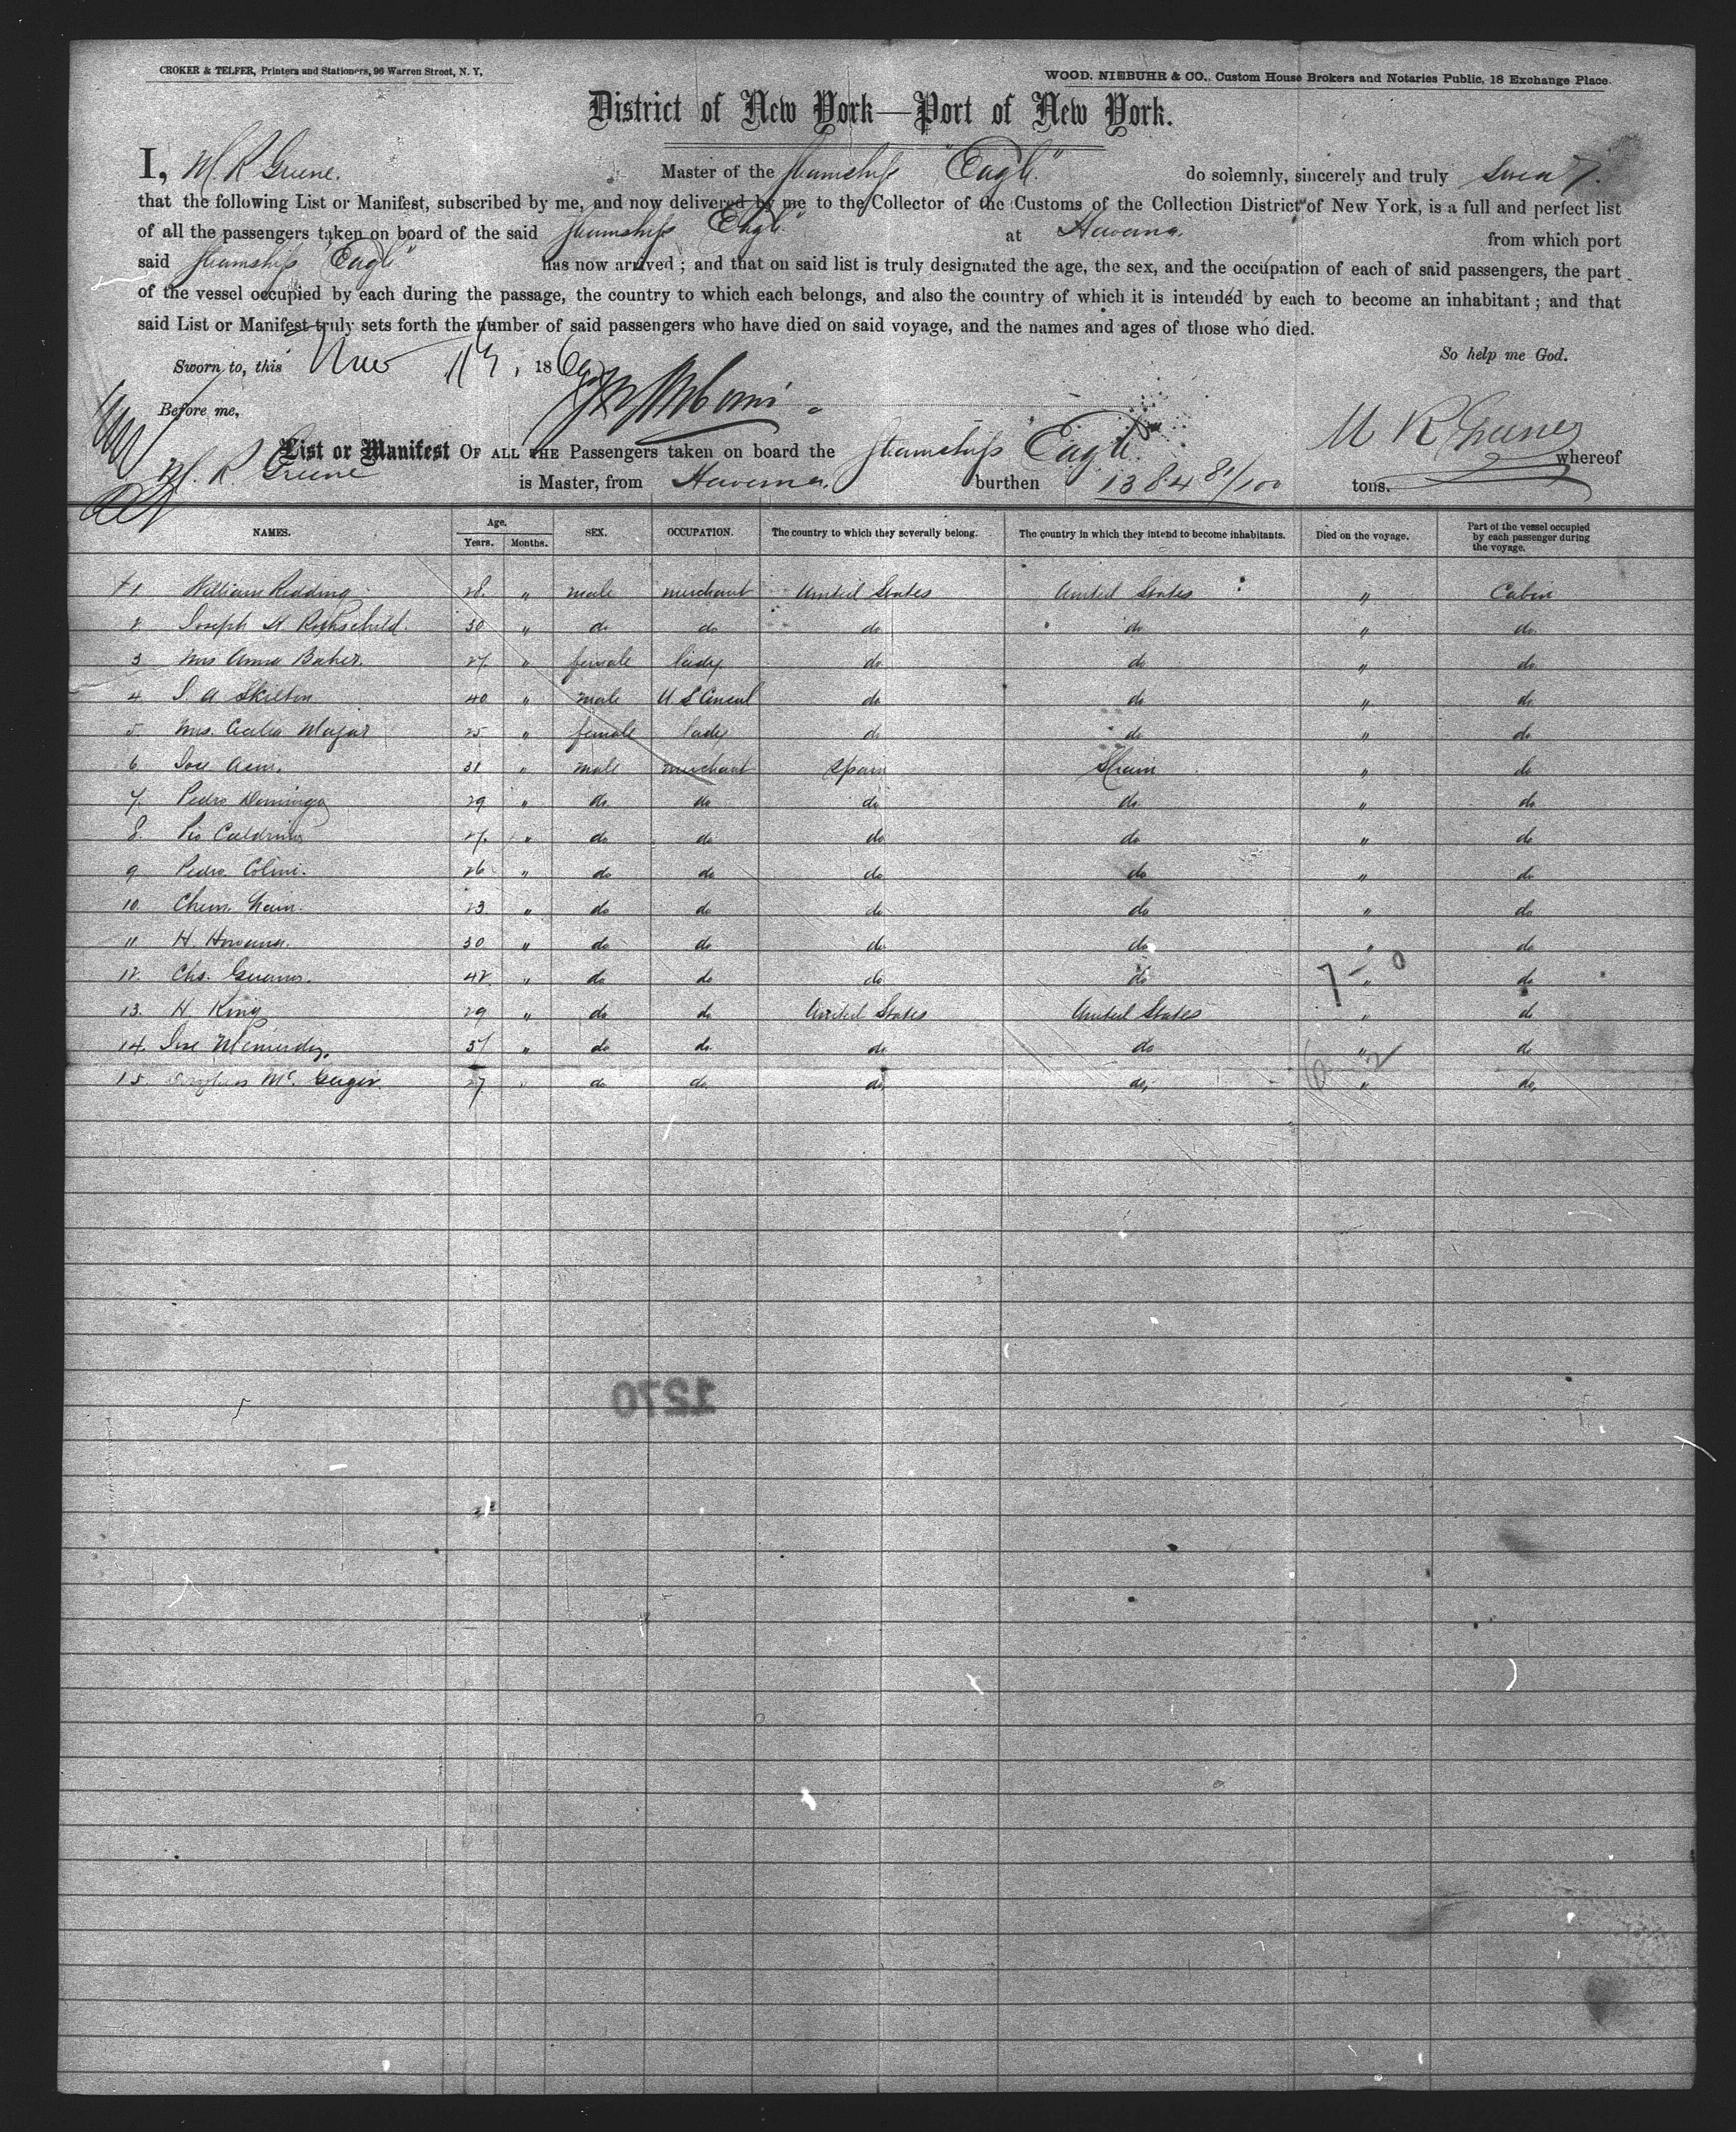 CROKER & TELFER, Printers and Stationers, 96 Warren Street, N. Y,
WOOD, NIEBUHR & CO., Custom House Brokers and Notaries Public, 18 Exchange Place.
District of New York—Port of New York.
I, M. R Greene. Master of the Steamship "Eagle" do solemnly, sincerely and truly swear
that the following List or Manifest, subscribed by me, and now delivered by me to the Collector of the Customs of the Collection District of New York, is a full and perfect list
of all the passengers taken on board of the said Steamship Eagle at Havana. from which port
said Steamship "Eagle" has now arrived; and that on said list is truly designated the age, the sex, and the occupation of each of said passengers, the part
of the vessel occupied by each during the passage, the country to which each belongs, and also the country of which it is intended by each to become an inhabitant; and that
said List or Manifest truly sets forth the number of said passengers who have died on said voyage, and the names and ages of those who died.
So help me God.
Sworn to, this Nov 186
Before me,
M R Greene
List or Manifest OF ALL THE Passengers taken on board the Steamship Eagle. whereof
M. R. Greene is Master, from Havana. burthen 1384 81/100 tons.
NAMES. Age. Years. Months. SEX. OCCUPATION. The country to which they severally belong. The country in which they intend to become inhabitants. Died on the voyage. Part of the vessel occupied by each passenger during the voyage.
1 William Redding 28. " male merchant United States United States " Cabin
2 Joseph H. Rothschild. 30 " do do do do " do
3 Mrs Anna Baker. 27. " female lady do do " do
4. J. A Skilton 40 " male U. S Consul do do " do
5. Mrs. Celia 25 " female lady do do " do
6. Jose 31 " male merchant Spain Spain " do
7. Pedro Domingo 29 " do do do do " do
8. Pio 27. " do do do do " do
9 Pedro Colini. 26 " do do do do " do
10. 23 " do do do do " do
11 H. 30 " do do do do " do
12. Chs. 42 " do do do do " do
13. H. King 29 " do do United States United States " do
14. Jose 37 " do do do do " do
15 Mc. 27 " do do do do " do
1270